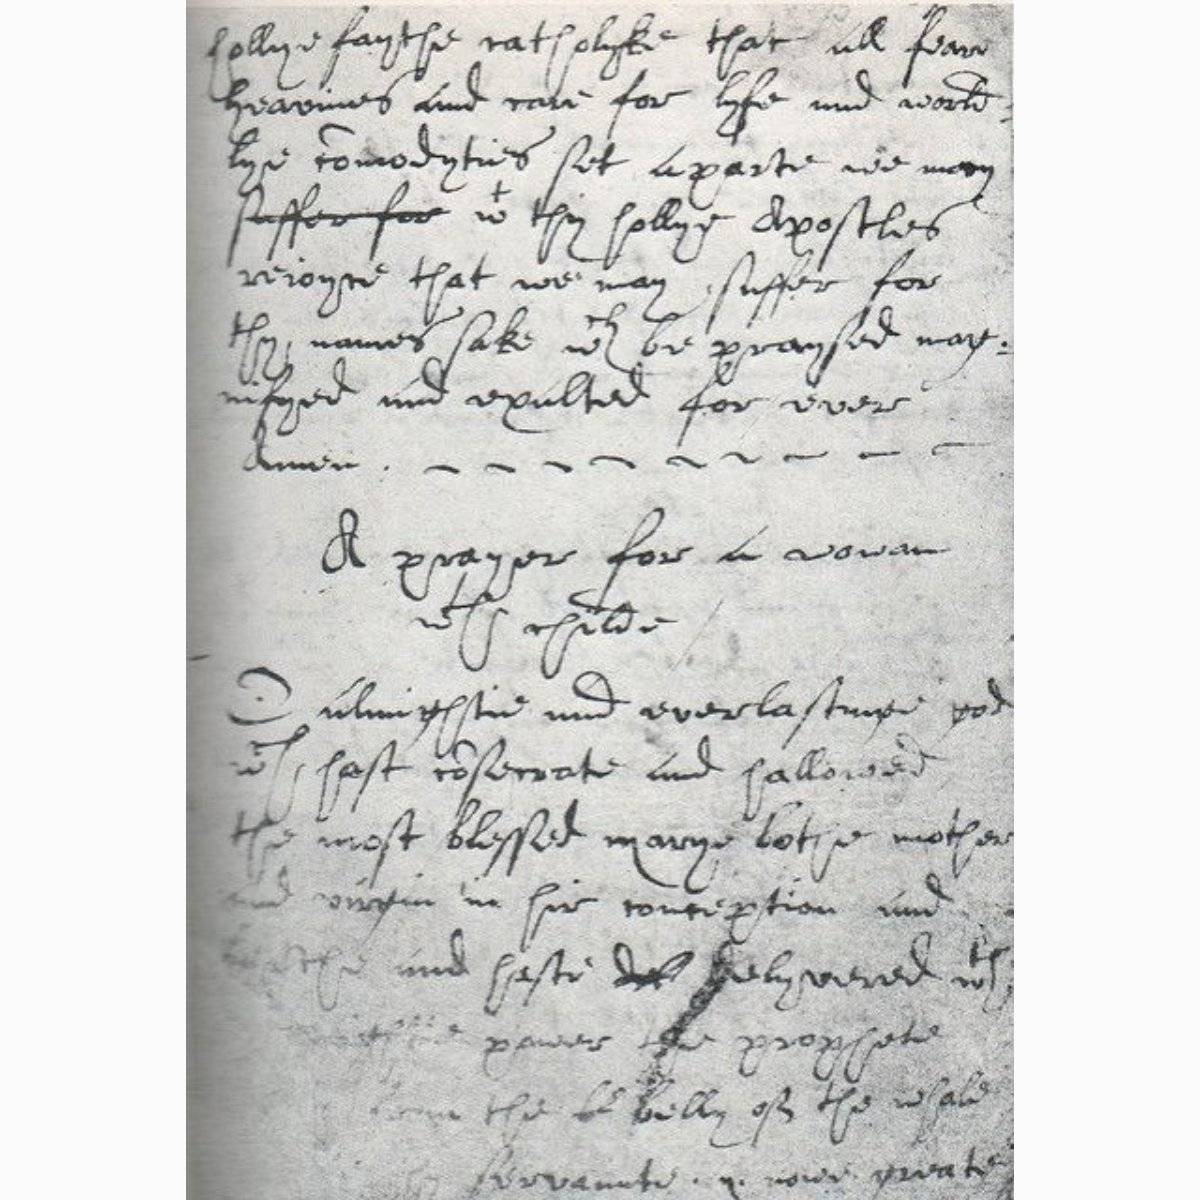 hollye faythe catholyke that all feare
heavines and care for lyfe and world-
lye cōmodyties set aparte we may
suffer for wt thy hollye Apostles
reioyce that we may suffer for
thy names sake wch be praysed mag-
nifyed and exalted for ever
Amen.
A prayer for a woman
wth childe
O almightie and everlastinge god
wch hast cōsecrate and hallowed
the most blessed marye bothe mother
and virgin in hir conception and
and haste delyvered wth
power the prophete
the be belly off the whale
servaunte now greate